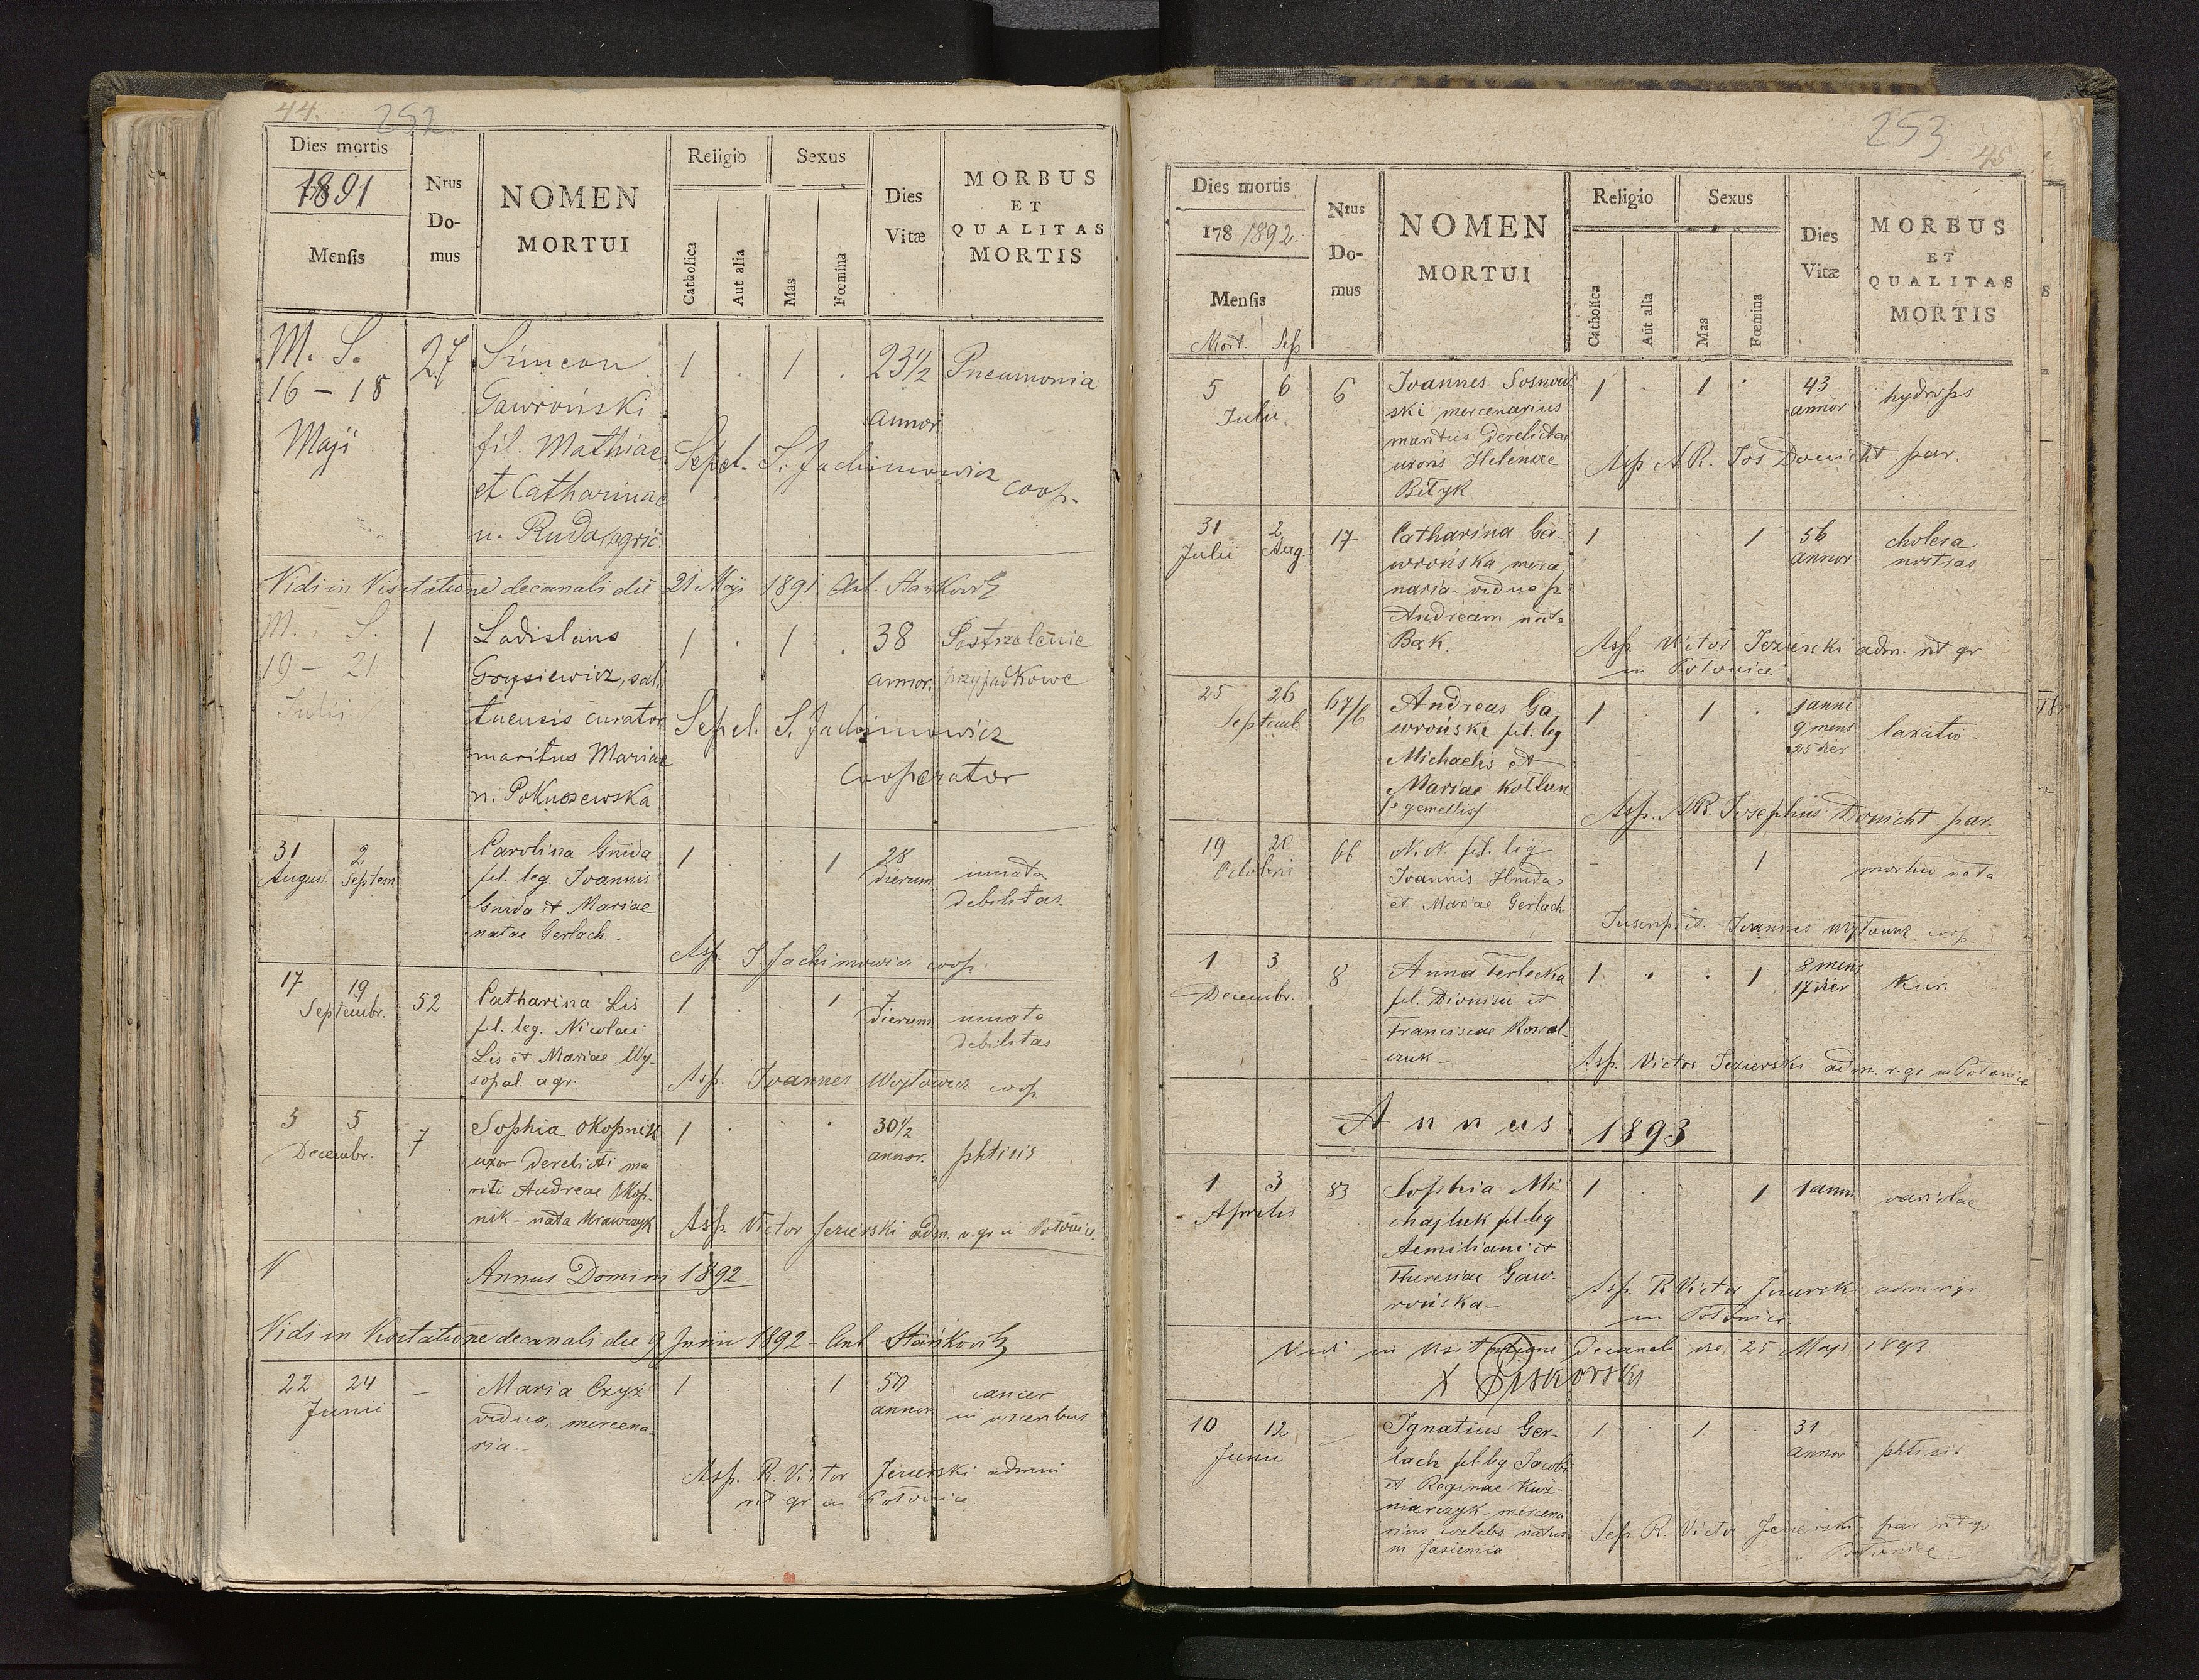 44. 252.
Dies mortis
1891
Mensis
Nrus Domus
NOMEN
MORTUI
Religio
Catholica
Aut alia
Sexus
Mas
Fœmina
Dies
Vitæ
MORBUS
ET
QUALITAS
MORTIS
M. S. 27 Simeon 1 . 1 . 23 1/2 Pneumonia
16 – 18 Gawroński annor
Maji fil. Mathiae Sepel. S. Jachimowicz
et Catharinae coop.
n. Ruda, agric.
Vidi in Visitatione decanali die 21 Maji 1891 Ant. Stańkovh
M. S. 1 Ladislaus 1 . 1 . 38 Postrzelenie
19 – 21 Grysiewicz, sal- annor. przypadkowe
Julii tuensis curator Sepel. S. Jachimowicz
maritus Mariae cooperator
n. Pokuszewska
31 2 Carolina Gnida 1 . 1 28 innata
August Septem fil. leg. Joannis dierum debilitas
Gnida et Mariae
natae Gerlach.
Asp. S. Jachimowicz coop.
17 19 52 Catharina Lis 1 . 1 7 innata
Septembr. fil. leg. Nicolai dierum debilitas
Lis et Mariae Wy-
sopal. agr. Asp. Joannes Woytowicz coop
3 5 7 Sophia Okopnik 1 . . . 30 1/2 phtisis
Decembr. uxor derelicti ma annor.
riti Andreae Okop-
nik – nata Krawczyk Asp. Victor Jezierski adm. r. gr in Potonice
Annus Domini 1892
Vidi in Visitatione decanali die 9 Junii 1892 – Ant Stańkovh
22 24 – Maria Czyż 1 . 1 50 cancer
Junii vidua, mercena- annor in visceribus
ria.–
Asp. R. Victor Jezierski admini
rit gr in Potonice.
253
45
Dies mortis
178 1892.
Mensis
Mort. Sep
Nrus Domus
NOMEN
MORTUI
Religio
Catholica
Aut alia
Sexus
Mas
Fœmina
Dies
Vitæ
MORBUS
ET
QUALITAS
MORTIS
5 6 6 Joannes Sosnow- 1 . 1 . 43 hydrops
Julii ski mercenarius annor
maritus derelictae
uxoris Helenae Asp. A.R. Jos Donicht par.
Bityk
31 2 17 Catharina Ga- 1 . . 1 56 cholera
Julii Aug. wrońska merce- annor nostras
naria – vidua p.
Andream nat.
Bak. Asp. Victor Jezierski adm. rit gr
in Potonice.
25 26 67/6 Andreas Ga- 1 1 . 1 anni laxatio –
Septemb wroński fil. leg 9 mens
Michaelis et 25 dier
Mariae Kołtun
/e gemellis/ Asp. A.R. Josephus Donicht par.
19 20 66 N.N. fil. leg 1 mortuo nata
Octobris Joannis Hnida
et Mariae Gerlach.
Inscripsit. Joannes Woytowicz coop.
1 3 8 Anna Terlecka 1 . . 1 8 mens Kur.
Decembr. fil. Dionisii et 17 dier
Franciscae Kowal-
czuk – Asp. Victor Jezierski adm. r. gr in Potonice
Annus 1893
1 3 83 Sophia Mi- 1 1 1 anni variolae
Aprilis chajluk fil leg
Aemiliani et
Theresiae Gaw-
rońska – Asp. R Victor Jezierski admin r gr.
in Potonice.
Vidi in Visitatione decanali die 25 Maji 1893
X Piskorski
10 12 – Ignatius Ger- 1 . 1 31 phtisis
Junii lach fil leg Jacobi annor
et Reginae Kuź-
niarczyk mercena
rius coelebs natus
in Jasiemia
Sep. R. Victor Jezierski par rit gr
in Potonice